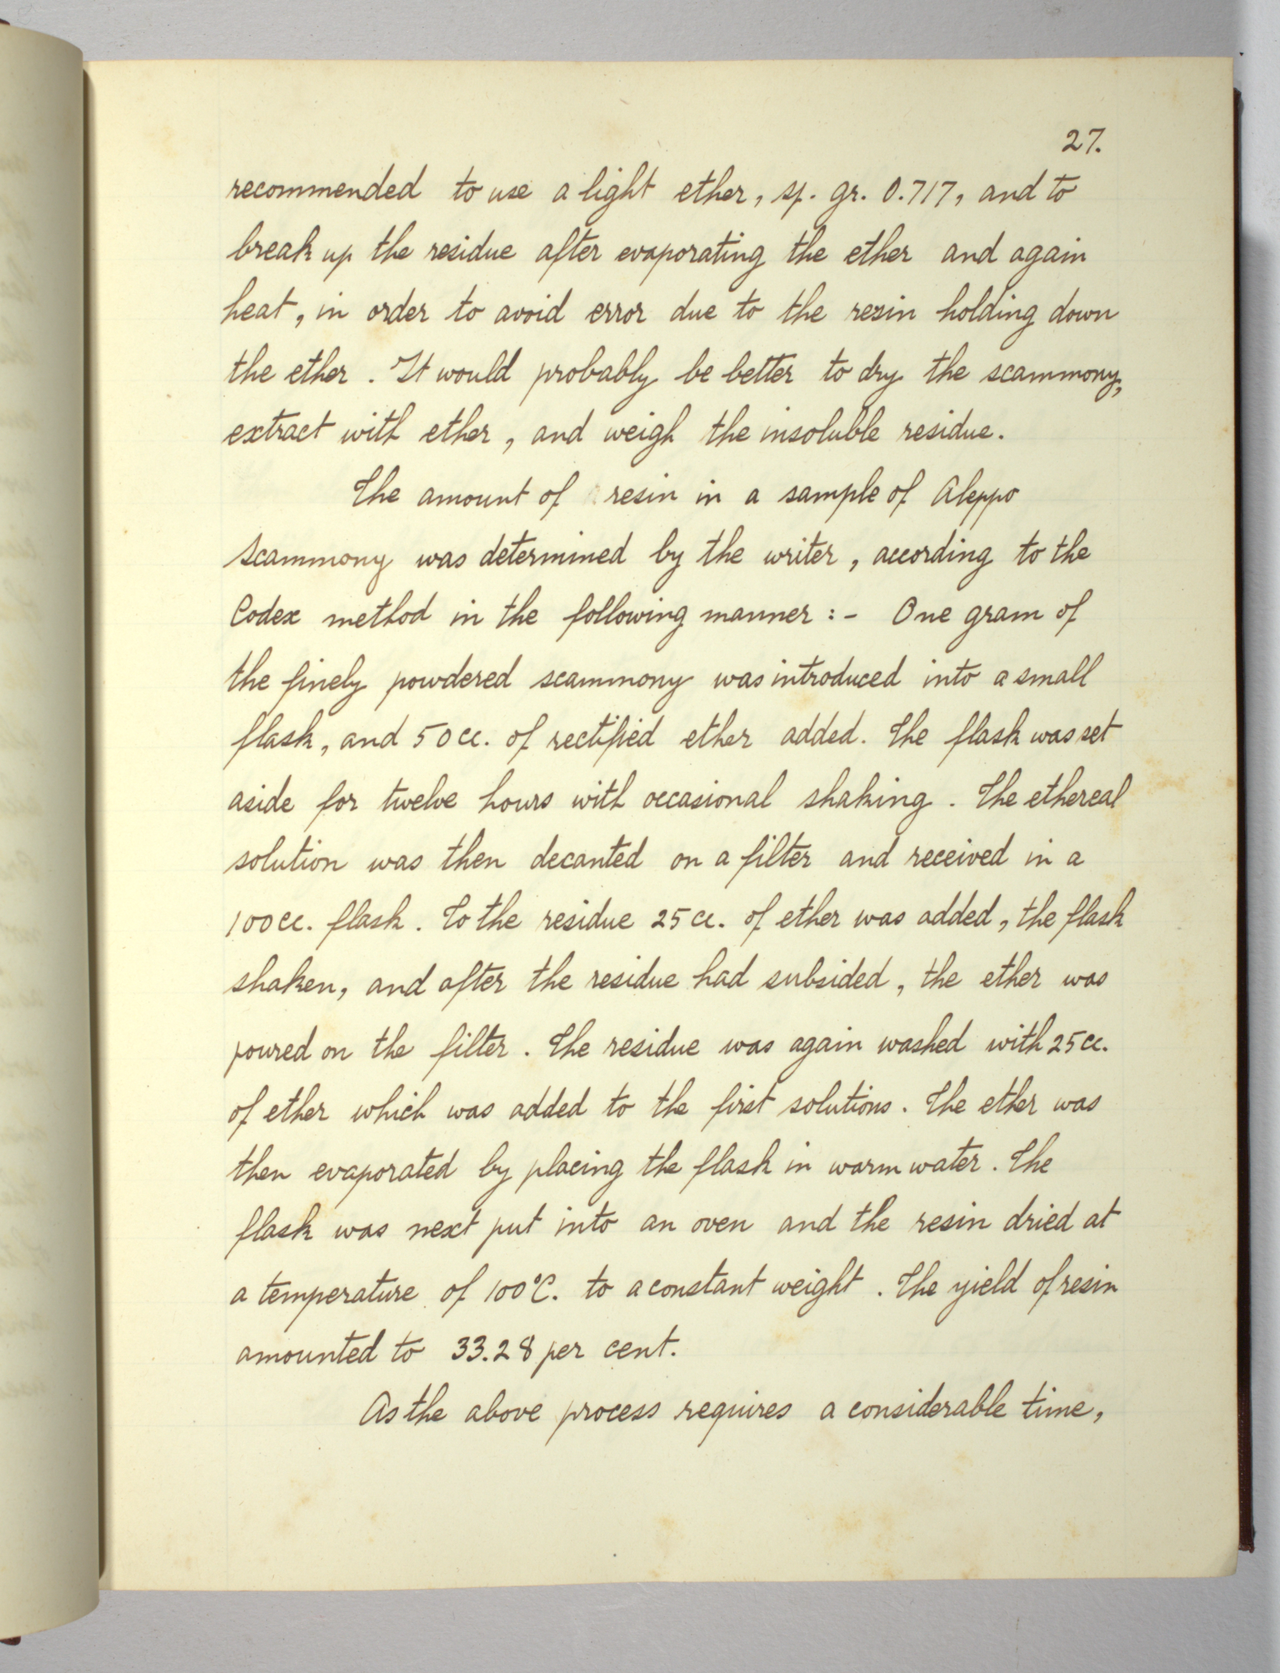 27.
recommended to use a light ether, sp. gr. 0.717, and to
break up the residue after evaporating the ether and again
heat, in order to avoid error due to the resin holding down
the ether. It would probably be better to dry the scammony,
extract with ether, and weigh the insoluble residue.
The amount of resin in a sample of Aleppo
scammony was determined by the writer, according to the
Codex method in the following manner :- One gram of
the finely powdered scammony was introduced into a small
flask, and 50cc. of rectified ether added. The flask was set
aside for twelve hours with occasional shaking. The ethereal
solution was then decanted on a filter and received in a
100cc. flask. To the residue 25cc. of ether was added, the flask
shaken, and after the residue had subsided, the ether was
poured on the filter. The residue was again washed with 25cc.
of ether which was added to the first solutions. The ether was
then evaporated by placing the flask in warm water. The
flask was next put into an oven and the resin dried at
a temperature of 100°C. to a constant weight. The yield of resin
amounted to 33.28 per cent.
As the above process requires a considerable time,